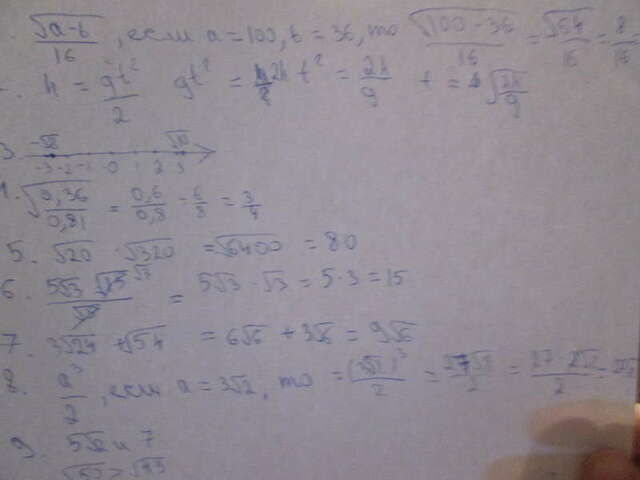 √(a-b)/16, если a = 100, b = 36, то √(100-36)/16 = √64/16 = 8/16
h = gt²/2 gt² = 2h t² = 2h/g t = √(2h/g)
3. -√8 √10
-3 -2 -1 0 1 2 3
4. √(0,36/0,81) = 0,6/0,8 = 6/8 = 3/4
5. √20 · √320 = √6400 = 80
6. 5√3 √3 = 5√3 · √3 = 5 · 3 = 15
7. 3√24 + √54 = 6√6 + 3√6 = 9√6
8. a³/2, если a = 3√2, то = (3√2)³/2 = 27√8/2 = 27 · 2√2/2
9. 5√2 и 7
√50 > √49